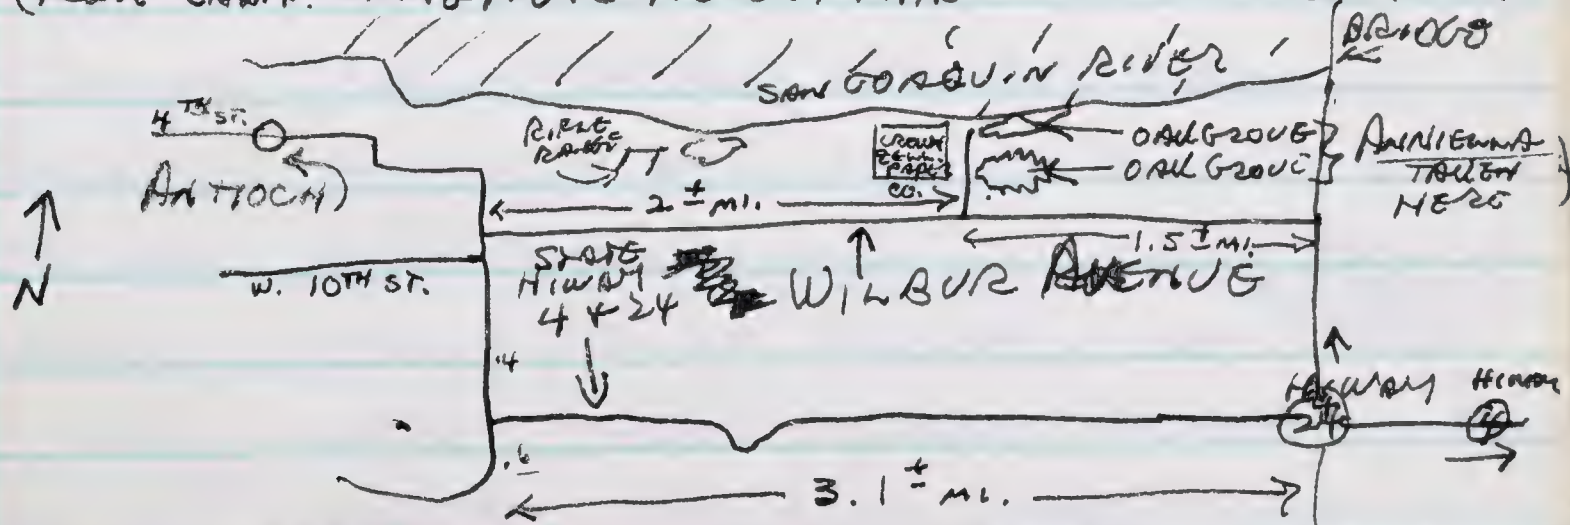 BRIDGE
SAN JOAQUIN RIVER
4TH ST.
RIFLE
RANGE
CROWN
ZELL.
PAPER
CO.
OAK GROVE
OAK GROVE
ANNIELLA
TAKEN
HERE
ANTIOCH
2 ± MI.
1.5 ± MI.
N
W. 10TH ST.
STATE
HIWAY
4 + 24
WILBUR AVENUE
.4
HIWAY
24
HIWAY
4
.6
3.1 ± MI.